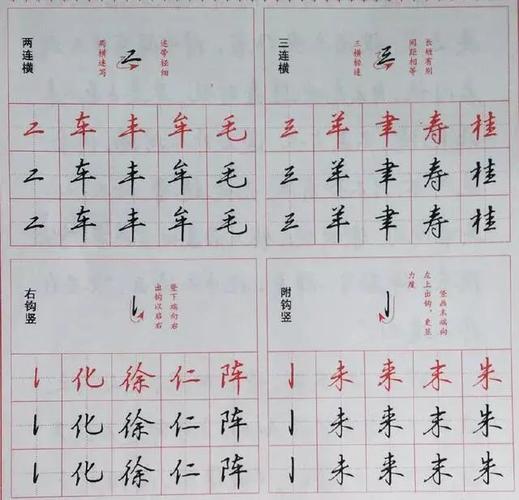 两连横
连带轻细
两横连写
车 丰 牟 毛
车 丰 牟 毛
车 丰 牟 毛
三连横
长短有别
间距相等
三横轻连
羊 聿 寿 桂
羊 聿 寿 桂
羊 聿 寿 桂
右钩竖
竖下端向右
出钩以启右
化 徐 仁 阵
化 徐 仁 阵
化 徐 仁 阵
附钩竖
竖画末端向
左上出钩，更显
力度
未 来 末 朱
未 来 末 朱
未 来 末 朱